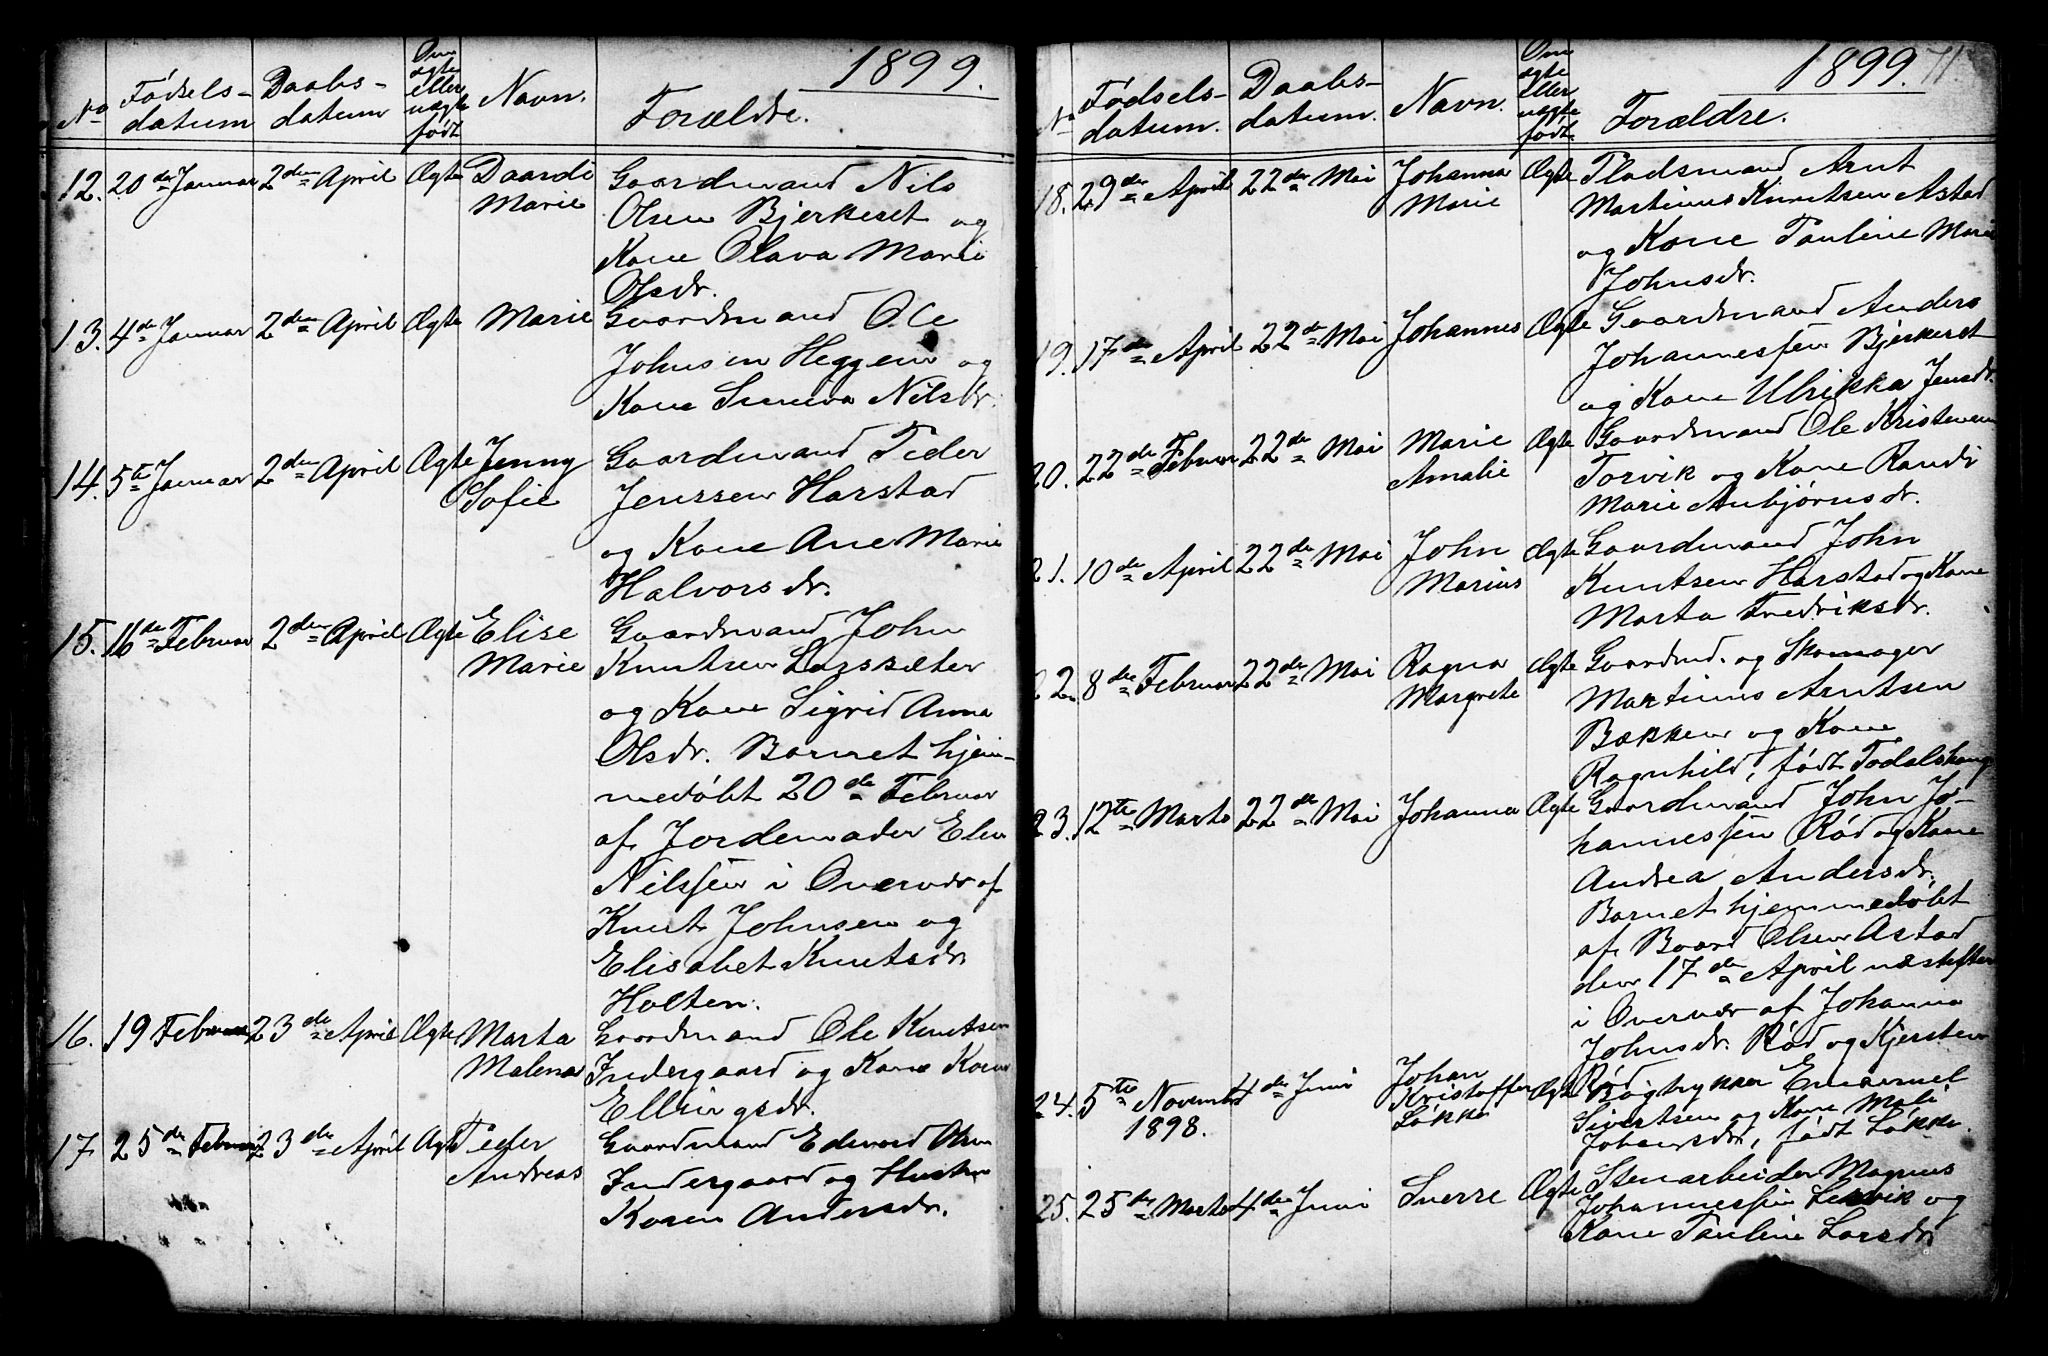 1899.
No
Fødsels-
datum
Daabs-
datum
Om
ægte
eller
uægte
født
Navn.
Forældre.
12. 20de Januar 2den April Ægte Daardi
Marie
Gaardmand Nils
Olsen Bjerkeset og
Kone Olava Marie
Olsdr.
13. 4de Januar 2den April Ægte Marie
Gaardmand Ole
Johnsen Heggem og
Kone Sineva Nilsdr.
14. 5te Januar 2den April Ægte Jenny
Sofie
Gaardmand Peder
Jenssen Harstad
og Kone Ane Marie
Halvorsdr.
15. 16de Februar 2den April Ægte Elise
Marie
Gaardmand John
Knutsen Larssæter
og Kone Sigrid Anna
Olsdr. Barnet hjem-
medøbt 20de Februar
af Jordemoder Elen
Nilssen i Overvær af
Knut Johnsen og
Elisabet Knutsdr.
Holten.
16. 19 Februar 23de April Ægte Marta
Malena
Gaardmand Ole Knutsen
Indergaard og Kone Karen
Ellingsdr.
17 25de Februar 23de April Ægte Peder
Andreas
Gaardmand Edvard Olsen
Indergaard og Hustru
Karen Andersdr.
1899. 71
No
Fødsels-
datum.
Daabs-
datum.
Navn.
Om
ægte
eller
uægte
født.
Forældre.
18. 29de April 22de Mai Johanna
Marie
Ægte Pladsmand Arnt
Martinus Knutsen Astad
og Kone Pauline Marie
Johnsdr.
19. 17de April 22de Mai Johannes Ægte Gaardmand Anders
Johannessen Bjerkeset
og Kone Ulrikka Jensdr.
20. 22de Februar 22de Mai Marie
Amalie
Ægte Gaardmand Ole Kristensen
Torvik og Kone Randi
Marie Anbjørnsdr.
21. 10de April 22de Mai John
Marius
Ægte Gaardmand John
Knutsen Harstad og Kone
Marta Fredriksdr.
22. 8de Februar 22de Mai Ragna
Margrete
Ægte Gaardmd. og Skomager
Martinus Arntsen
Bakken og Kone
Ragnhild, født Todalshaug
23. 12te Marts 22de Mai Johanna Ægte Gaardmand John Jo-
hannessen Rød og Kone
Andrea Andersdr.
Barnet hjemmedøbt
af Baard Olsen Astad
den 17de April næstefter
i Overvær af Johanna
Johnsdr. Rød og Kjersten
Rød
24. 5te November 4de Juni
1898.
Johan
Kristoffer
Løkke
Ægte Bogtrykker Emanuel
Sivertsen og Kone Mali
Johansdr., født Løkke.
25. 25de Marts 4de Juni Sverre Ægte Stenarbeider Magnus
Johannessen Leervik og
Kone Pauline Larsdr.